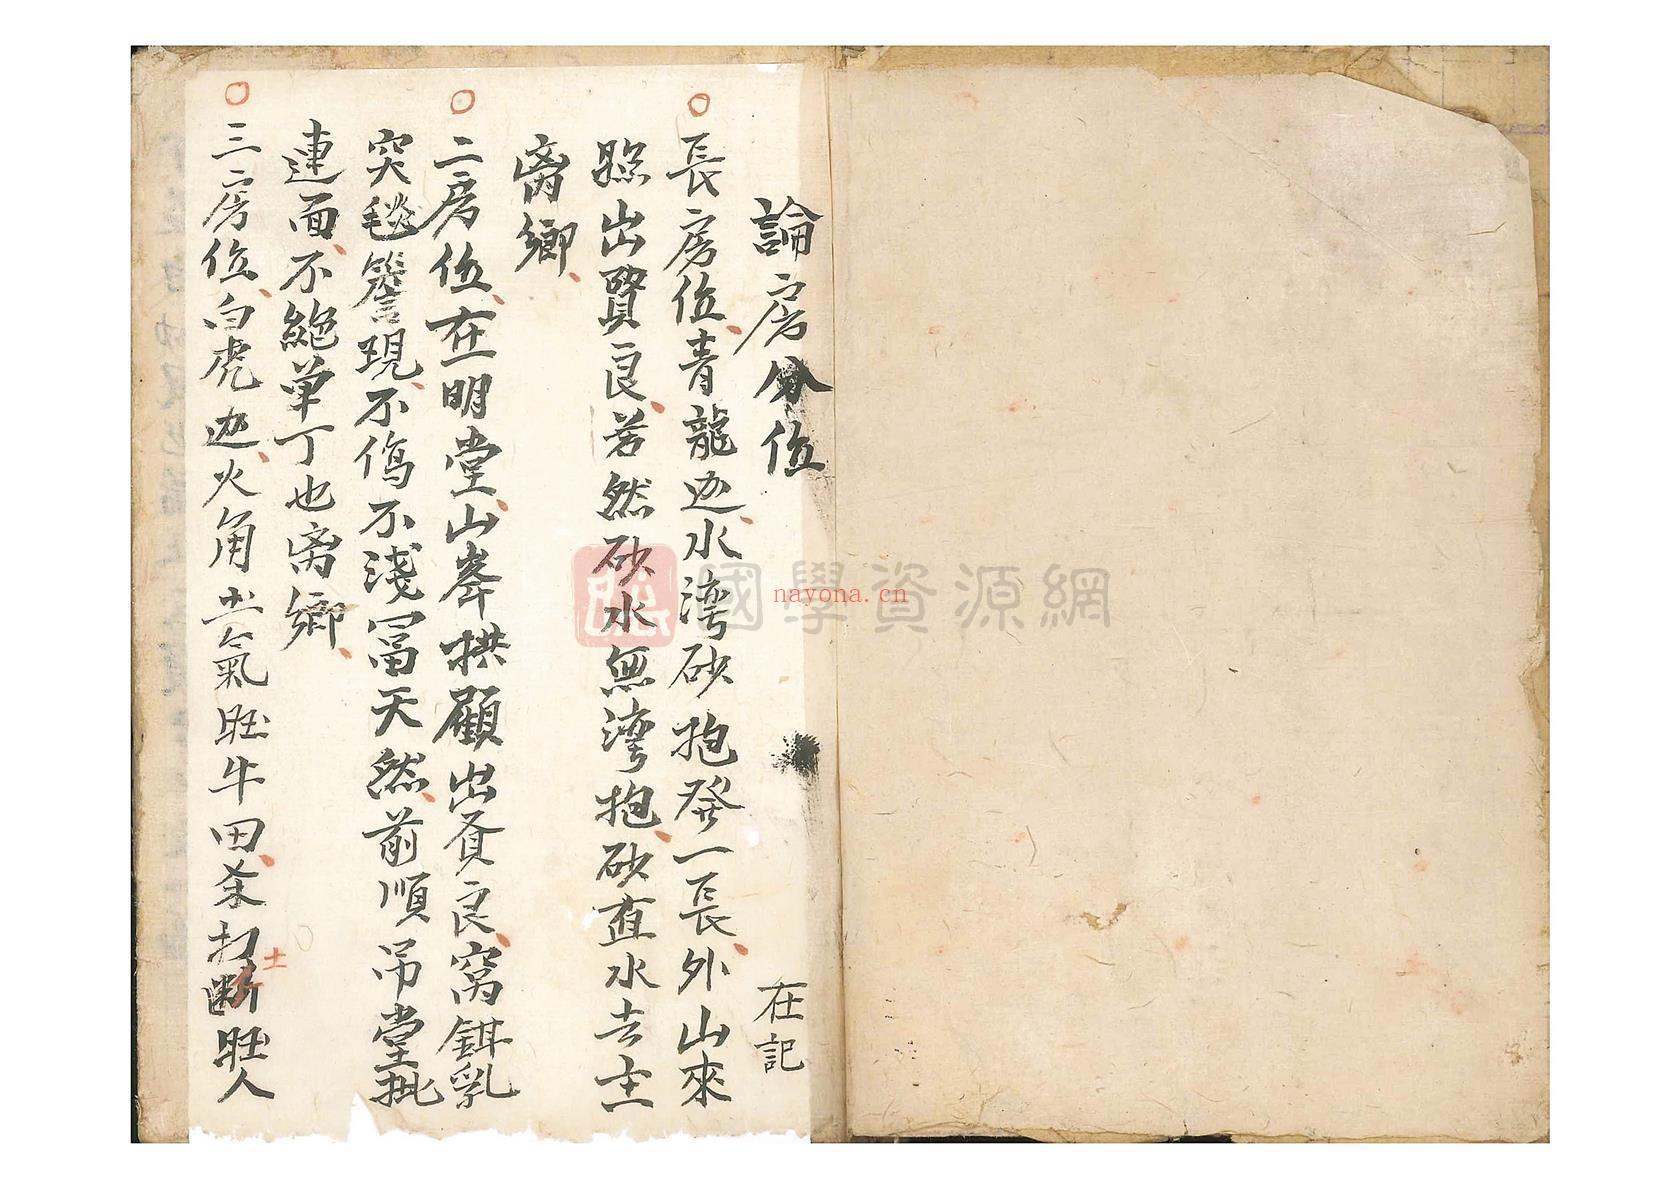 論房分位
在記
長房位青龍迯水湾砂抱發一長外山來
照出賢良若然砂水無湾抱砂直水去主
离鄉
二房位在明堂山峯拱顧出賢良窩鉗乳
突毬簷現不傷不淺富天然前順吊堂批
連面不絶单丁也离鄉
三房位白虎迯火角 氣旺牛田 打断旺人
土
國學資源網
nayona.cn